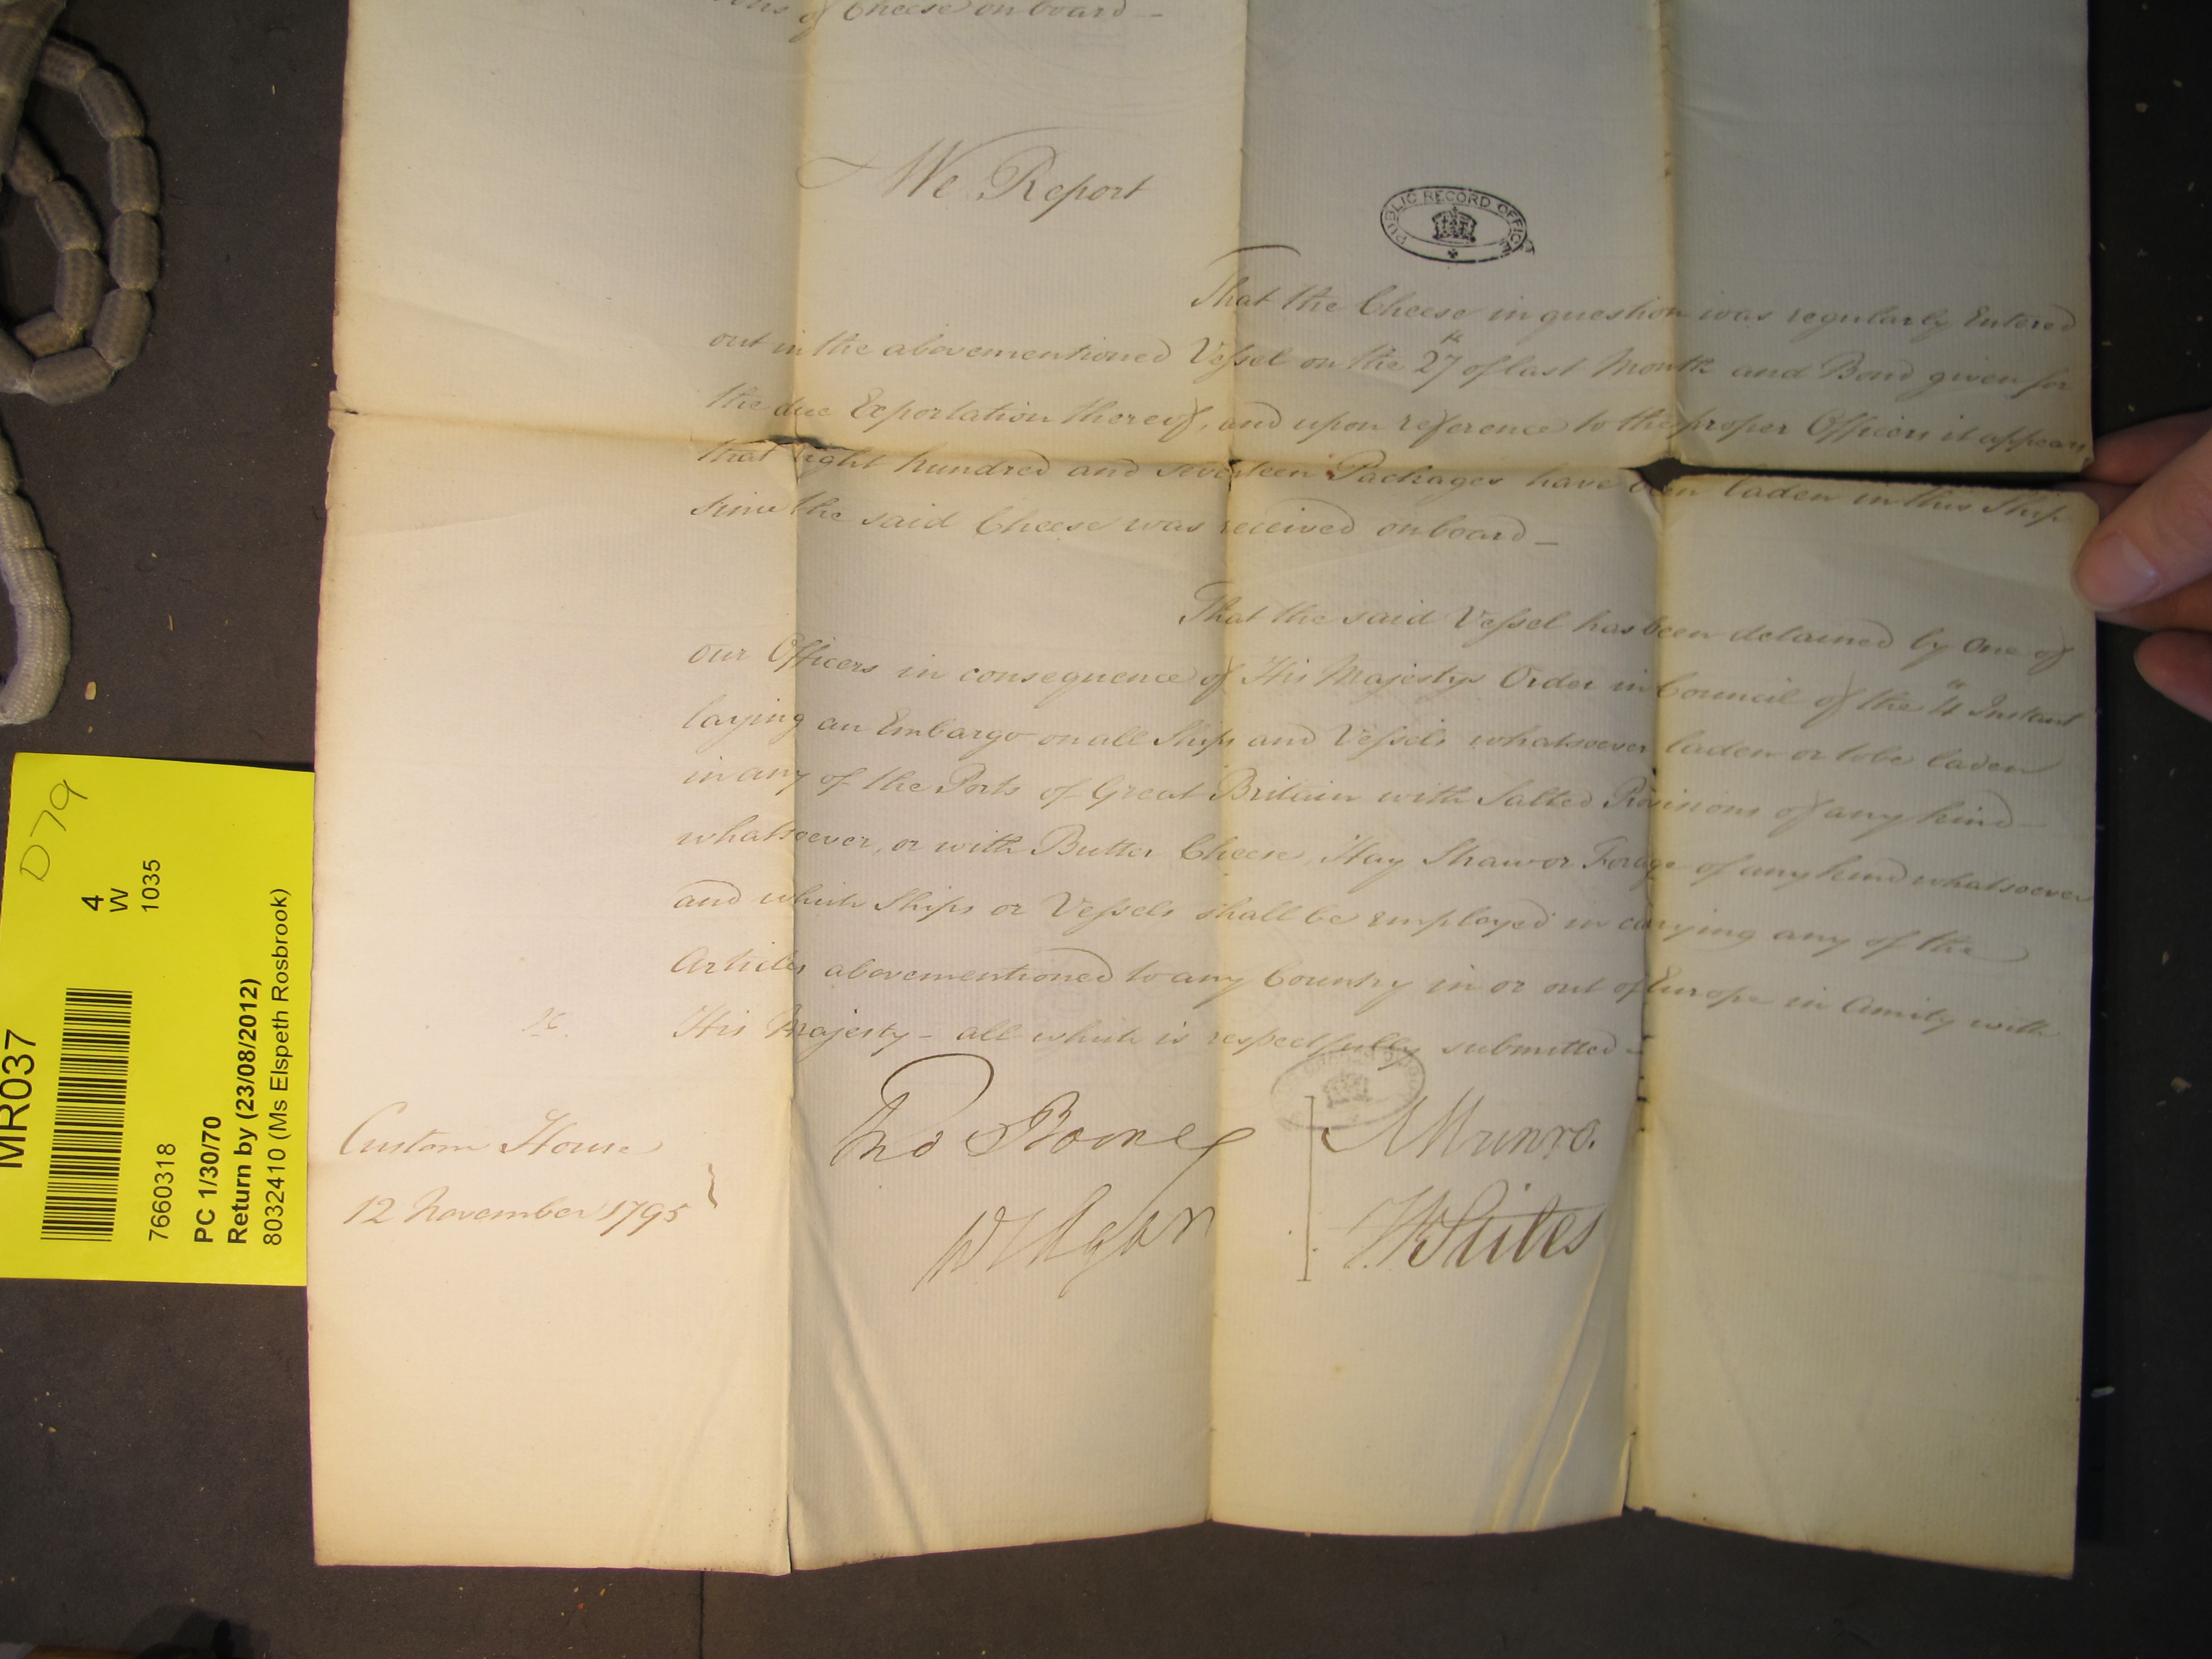 of Cheese on board —
We Report
PUBLIC RECORD OFFICE
That the Cheese in question was regularly Entered
out in the abovementioned Vessel on the 27th of last Month and Bond given for
the due Exportation thereof, and upon reference to the proper Officers it appears
that Eight hundred and seventeen Packages have been laden in this Ship
since the said Cheese was received on board —
That the said Vessel has been detained by One of
our Officers in consequence of His Majestys Order in Council of the 4th Instant
laying an Embargo on all Ships and Vessels whatsoever laden or to be laden
in any of the Ports of Great Britain with Salted Provisions of any kind —
whatsoever, or with Butter Cheese, Hay Straw or Forage of any kind whatsoever
and which Ships or Vessels shall be employed in carrying any of the
Articles abovementioned to any Country in or out of Europe in Amity with
His Majesty — all which is respectfully submitted —
Custom House
12 November 1795
Tho Boone
A Munro.
W Stiles
D79
4
W
1035
MR037
7660318
PC 1/30/70
Return by (23/08/2012)
8032410 (Ms Elspeth Rosbrook)